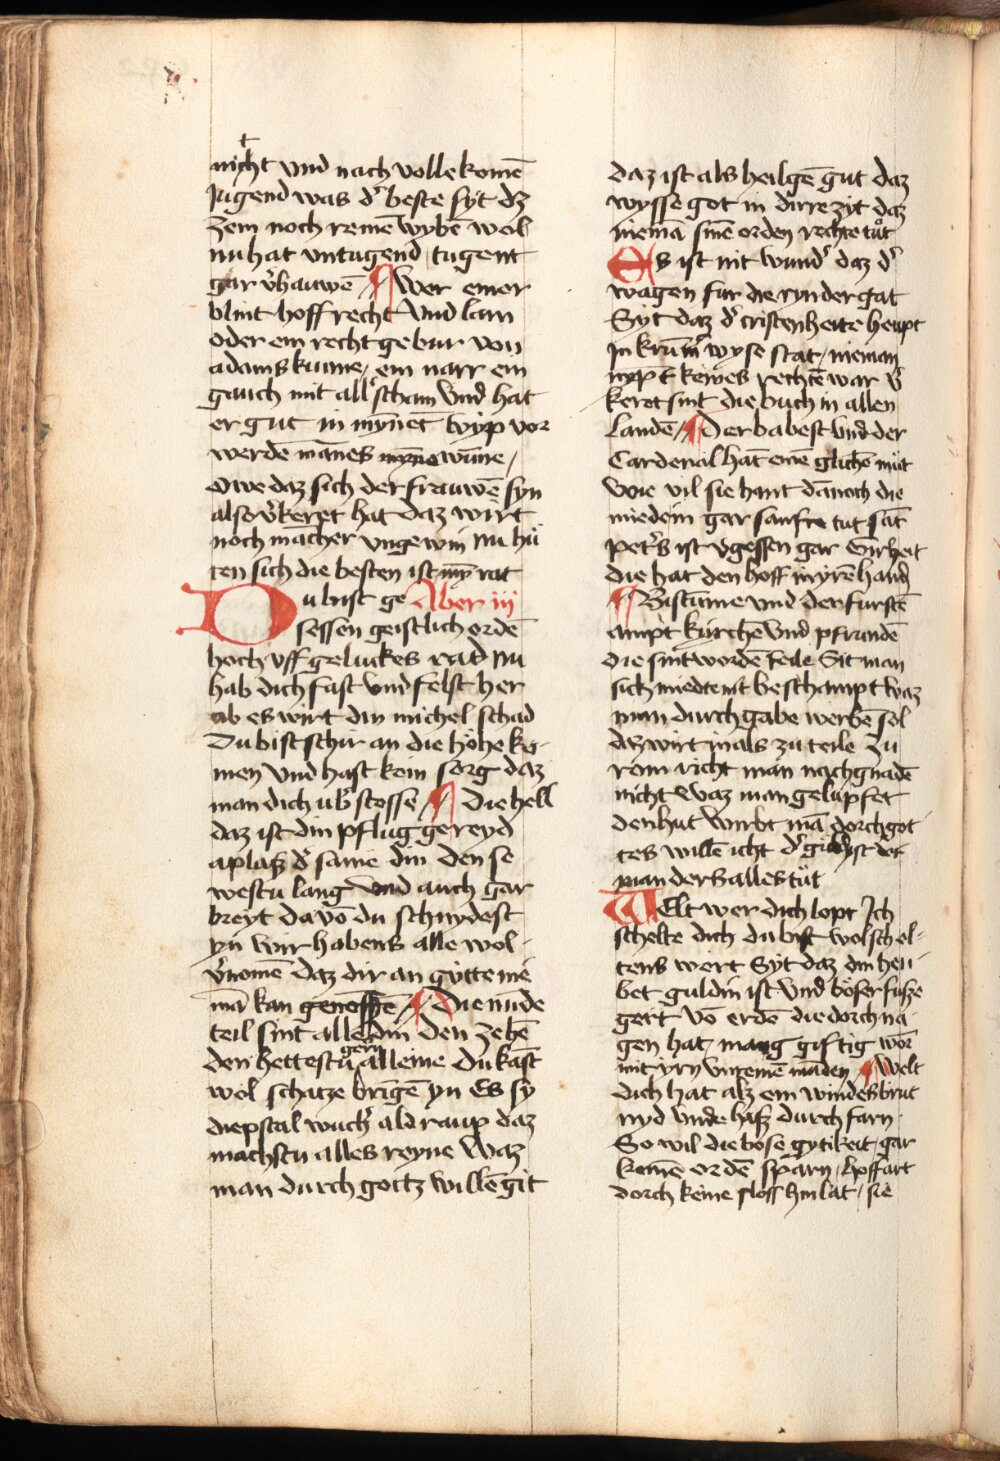 nicht vnd nach vollekomē
Jugend was d' beste syt dz
zem noch reinē wybē wol
nu hat vntugend tugent
gar v'hauwē ¶ Wer einer
blint hoff recht vnd larn
oder ein recht gebur von
adams kunne, ein narr ein
gauch mit all' scham vnd hat
er gut in mynēt wyp vor
werdē mānes wūne,
Owe daz sich der frauwē syn
also v'keret hat daz wirt
noch mācher vngewin nu hü
ten sich die besten ist mȳ rat
Du bist ge Aber iij
sessen geistlich ordē
hoch vff geluckes rad nu
hab dich fast vnd felst her
ab es wirt din michel schad
Du bist schir an die höhe ko-
men vnd hast kein sorg daz
man dich ub' stosse ¶ Die hell
daz ist din pflug gereyd
aplaß d' same din den se
westu lang vnd auch gar
breyt da vō du schnydest
yn wir habens alle wol-
v'nomē daz dir an gytte me
mā kan genosse ¶ Die nūde
teil sint alle din den zehē
den hettestu gern alleine du kāst
wol schatze brīgē yn Es sy
diepstal wuch' ald raup daz
machstu alles reyne Waz
man durch gottz willē git
daz ist als heilgē gut daz
wysse got in dirre zyt daz
niemā sinē orden rechte tůt
Es ist nit wund' daz d'
wagen fur die rynder gat
Syt daz d' cristenheite heupt
in krum' wyse stat, nieman
nȳpt keines rechtē war v'
keret sint die buch in allen
landē, ¶ Der babest vnd der
Cardenal hāt einē glichē můt
Wie vil sie hant dānoch die
miedein gar sanfte tut sāt
pet's ist v'gessen gar Girheit
die hat den hoff in yrē hand
¶ Bistūme vnd der furstē
ampt kirchē vnd pfrundē
die sint wordē feile Sit man
sich miedte nit beschampt waz
man durch gabe werbē sol
daz wirt in als zu teile Zu
rom richt man nach gnadē
nicht Waz man gelupfet
den hut Wirbt mā dorch got-
tes willē icht d' ist der
man ders alles tůt
Welt wer dich lopt Ich
schelte dich du bist wol schel-
tens wert Syt daz din heu-
bet guldin ist vnd böser fuße
gert vō erdē die dorch na-
gen hat mang giftig worm
mit yrn vnreinē mādem ¶ Welt
dich hat alz ein windes brut
nyd vnde haß durch farn
So wil die böse gytikeit, gar
keinē ordē sparn, hoffart
dorch keine sloss hin lat, sie